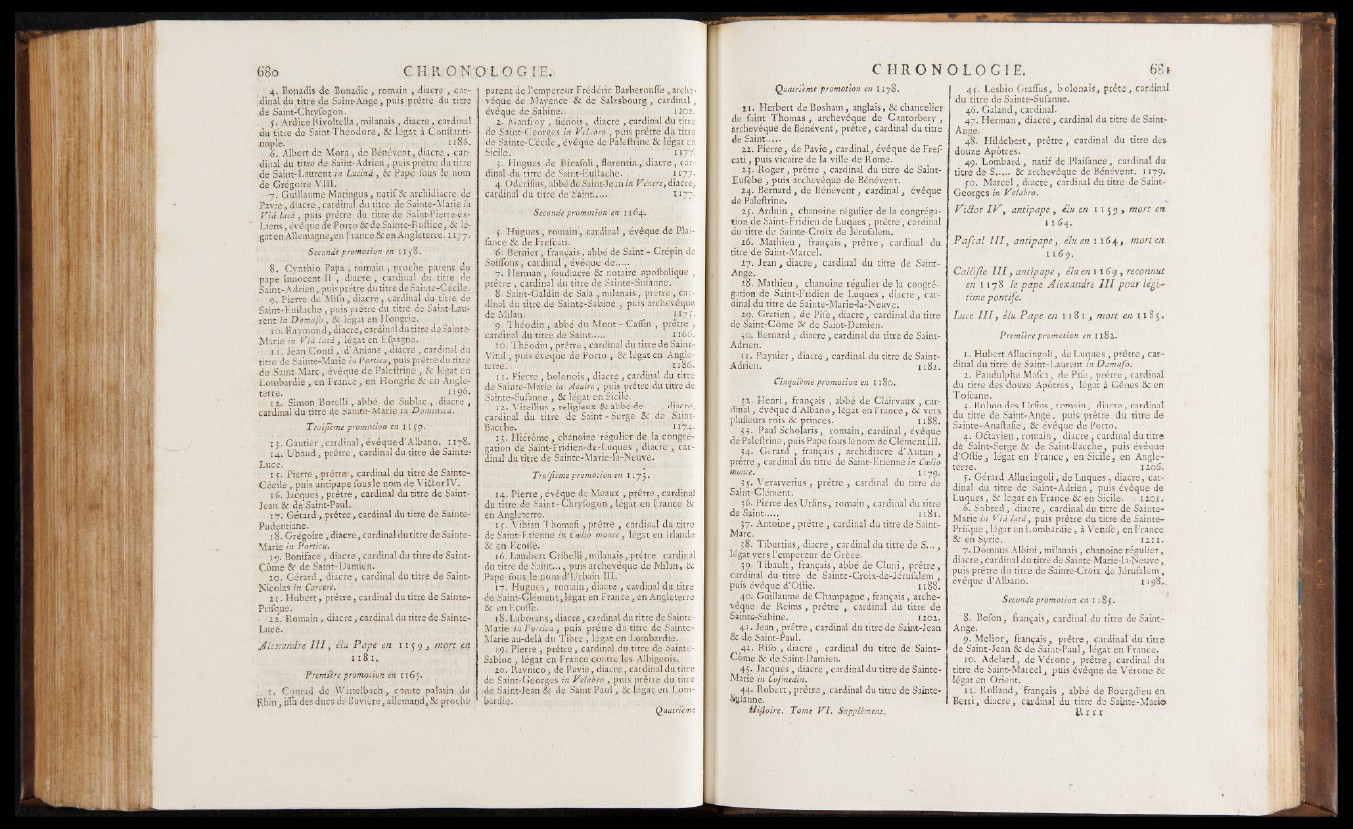 680 CHRONOLOGIE.
4. Bonadis de Bonadic, romain, diacre, car-
dinal du titre de Saint-Ange, puis prêtre du titre
de Saint-Chryſogon.
5. Ardice Rivoltella, milanais, diacre, cardinal
du titre de Saint-Théodore, & légat à Conſtanti-
nople. 1186.
6. Albert de Mora, de Bénévent, diacre, car-
dinal du titre de Saint-Adrien, puis prêtre du titre
de Saint-Laurent in Lucinâ, & Pape ſous le nom
de Grégoire VIII.
7. Guillaume Matingus, natif & archidiacre de
Pavie, diacre, cardinal du titre de Sainte-Marie in
Viâ latâ, puis prêtre du titre de Saint-Pierre-ès-
Liens, évêque de Porto & de Sainte-Ruffice, & lé-
gat en Allemagne, en France & en Angleterre. 1177.
Seconde promotion en 1158.
8. Cynthio Papa, romain, proche parent du
pape Innocent II, diacre, cardinal du titre de
Saint-Adrien, puis prêtre du titre de Sainte-Cécile.
9. Pierre de Miſo, diacre, cardinal du titre de
Saint-Euſtache, puis prêtre du titre de Saint-Lau-
rent in Damaſo, & légat en Hongrie.
10. Raymond, diacre, cardinal du titre de Sainte-
Marie in Viâ latâ, légat en Eſpagne.
11. Jean Conti, d'Aniane, diacre, cardinal du
titre de Sainte-Marie in Porticu, puis prêtre du titre
de Saint-Marc, évêque de Paleſtrine, & légat en
Lombardie, en France, en Hongrie & en Angle-
terre. 1196.
12. Simon Borelli, abbé de Sublac, diacre,
cardinal du titre de Sainte-Marie in Dominica.
Troiſième promotion en 1159.
13. Gautier, cardinal, évêque d'Albano. 1178.
14. Ubaud, prêtre, cardinal du titre de Sainte-
Luce.
15. Pierre, prêtre, cardinal du titre de Sainte-
Cécile, puis antipape ſous le nom de Victor IV.
16. Jacques, prêtre, cardinal du titre de Saint-
Jean & de Saint-Paul.
17. Gérard, prêtre, cardinal du titre de Sainte-
Pudentiane.
18. Grégoire, diacre, cardinal du titre de Sainte-
Marie in Porticu.
19. Boniface, diacre, cardinal du titre de Saint-
Côme & de Saint-Damien.
20. Gérard, diacre, cardinal du titre de Saint-
Nicolas in Carcere.
21. Hubert, prêtre, cardinal du titre de Sainte-
Priſque.
22. Romain, diacre, cardinal du titre de Sainte-
Luce.
Alexandre III, élu Pape en 1159, mort en
1181.
Première promotion en 1165.
1. Conrad de Wittelbach, comte palatin du
Rhin, iſſu des ducs de Bavière, allemand, & proche
parent de l'empereur Frédéric Barberouſſe, arche-
vêque de Mayence & de Salzsbourg, cardinal,
évêque de Sabine. 1202.
2. Manfroy, ſiénois, diacre, cardinal du titre
de Saint-Georges in Velabro, puis prêtre du titre
de Sainte-Cécile, évêque de Paleſtrine & légat en
Sicile. 1177.
3. Hugues de Ricaſoli, florentin, diacre, car-
dinal du titre de Saint-Euſtache. 1177.
4. Oderiſius, abbé de Saint-Jean in Venere, diacre,
cardinal du titre de Saint..... 1177.
Seconde promotion en 1164.
5. Hugues, romain, cardinal, évêque de Plai-
ſance & de Freſcati.
6. Bernier, français, abbé de Saint-Crépin de
Soiſſons, cardinal, évêque de.....
7. Herman, ſoudiacre & notaire apoſtolique,
prêtre, cardinal du titre de Sainte-Suſanne.
8. Saint-Galdin de Sala, milanais, prêtre, car-
dinal du titre de Sainte-Sabine, puis archevêque
de Milan. 1175.
9. Théodin, abbé du Mont-Caſſin, prêtre,
cardinal du titre de Saint..... 1166.
10. Théodin, prêtre, cardinal du titre de Saint-
Vital, puis évêque de Porto, & légat en Angle-
terre. 1186.
11. Pierre, bolonois, diacre, cardinal du titre
de Sainte-Marie in Aquiro, puis prêtre du titre de
Sainte-Suſanne, & légat en Sicile.
12. Vitellius, religieux & abbé de diacre,
cardinal du titre de Saint-Serge & de Saint-
Bacche. 1174.
13. Hiérôme, chanoine régulier de la congré-
gation de Saint-Fridien-de-Luques, diacre, car-
dinal du titre de Sainte-Marie-la-Neuve.
Troiſième promotion en 1173.
14. Pierre, évêque de Meaux, prêtre, cardinal
du titre de Saint-Chryſogon, légat en France &
en Angleterre.
15. Vibian Thomaſi, prêtre, cardinal du titre
de Saint-Etienne in Cœlio monte, légat en Irlande
& en Ecoſſe.
16. Lambert Gribelli, milanais, prêtre cardinal
du titre de Saint..., puis archevêque de Milan, &
Pape ſous le nom d'Urbain III.
17. Hugues, romain, diacre, cardinal du titre
de Saint-Clément, légat en France, en Angleterre
& en Ecoſſe.
18. Laborans, diacre, cardinal du titre de Sainte-
Marie in Porticu, puis prêtre du titre de Sainte-
Marie au-delà du Tibre, légat en Lombardie.
19. Pierre, prêtre, cardinal du titre de Sainte-
Sabine, légat en France contre les Albigeois.
20. Raynico, de Pavie, diacre, cardinal du titre
de Saint-Georges in Velabro, puis prêtre du titre
de Saint-Jean & de Saint Paul, & légat en Lom-
bardie.
Quatrième
CHRONOLOGIE. 681
Quatrième promotion en 1178.
21. Herbert de Bosham, anglais, & chancelier
de ſaint Thomas, archevêque de Cantorbery,
archevêque de Bénévent, prêtre, cardinal du titre
de Saint.....
22. Pierre, de Pavie, cardinal, évêque de Freſ-
cati, puis vicaire de la ville de Rome.
23. Roger, prêtre, cardinal du titre de Saint-
Euſèbe, puis archevêque de Bénévent.
24. Bernard, de Bénévent, cardinal, évêque
de Paleſtrine.
25. Arduin, chanoine régulier de la congréga-
tion de Saint-Fridien de Luques, prêtre, cardinal
du titre de Sainte-Croix de Jéruſalem.
26. Mathieu, français, prêtre, cardinal du
titre de Saint-Marcel.
27. Jean, diacre, cardinal du titre de Saint-
Ange.
28. Mathieu, chanoine régulier de la congré-
gation de Saint-Fridien de Luques, diacre, car-
dinal du titre de Sainte-Marie-la-Neuve.
29. Gratien, de Piſe, diacre, cardinal du titre
de Saint-Côme & de Saint-Damien.
30. Bernard, diacre, cardinal du titre de Saint-
Adrien.
31. Raynier, diacre, cardinal du titre de Saint-
Adrien. 1181.
Cinquième promotion en 1180.
32. Henri, français, abbé de Clairvaux, car-
dinal, évêque d'Albano, légat en France, & vers
pluſieurs rois & princes. 1188.
33. Paul Scholaris, romain, cardinal, évêque
de Paleſtrine, puis Pape ſous le nom de Clément III.
34. Gérard, français, archidiacre d'Autun,
prêtre, cardinal du titre de Saint-Etienne in Cœlio
monte. 1179.
35. Verarverius, prêtre, cardinal du titre de
Saint-Clément.
36. Pierre des Urſins, romain, cardinal du titre
de Saint..... 1181.
37. Antoine, prêtre, cardinal du titre de Saint-
Marc.
38. Tiburtius, diacre, cardinal du titre de S...,
légat vers l'empereur de Grèce.
39. Tibault, français, abbé de Cluni, prêtre,
cardinal du titre de Sainte-Croix-de-Jéruſalem,
puis évêque d'Oſtie. 1188.
40. Guillaume de Champagne, français, arche-
vêque de Reims, prêtre, cardinal du titre de
Sainte-Sabine. 1202.
41. Jean, prêtre, cardinal du titre de Saint-Jean
& de Saint-Paul.
42. Rifo, diacre, cardinal du titre de Saint-
Côme & de Saint-Damien.
43. Jacques, diacre, cardinal du titre de Sainte-
Marie in Coſmedin.
44. Robert, prêtre, cardinal du titre de Sainte-
Suſanne.
Hiſtoire. Tome VI. Supplément.
45. Lesbio Graſſus, bolonais, prête, cardinal
du titre de Sainte-Suſanne.
46. Galand, cardinal.
47. Herman, diacre, cardinal du titre de Saint-
Ange.
48. Hildebert, prêtre, cardinal du titre des
douze Apôtres.
49. Lombard, natif de Plaiſance, cardinal du
titre de S..... & archevêque de Bénévent. 1179.
50. Marcel, diacre, cardinal du titre de Saint-
Georges in Velabro.
Victor IV, antipape, élu en 1159, mort en
1164.
Paſcal III, antipape, élu en 1164, mort en
1169.
Calliſte III, antipape, élu en 1169, reconnut
en 1178 le pape Alexandre III pour légi-
time pontife.
Luce III, élu Pape en 1181, mort en 1185.
Première promotion en 1182.
1. Hubert Allucingoli, de Luques, prêtre, car-
dinal du titre de Saint-Laurent in Damaſo.
2. Pandulphe Maſca, de Piſe, prêtre, cardinal
du titre des douze Apôtres, légat à Gênes & en
Toſcane.
3. Bobon des Urſins, romain, diacre, cardinal
du titre de Saint-Ange, puis prêtre du titre de
Sainte-Anaſtaſie, & évêque de Porto.
4. Octavien, romain, diacre, cardinal du titre
de Saint-Serge & de Saint-Bacche, puis évêque
d'Oſtie, légat en France, en Sicile, en Angle-
terre. 1206.
5. Gérard Allucingoli, de Luques, diacre, car-
dinal du titre de Saint-Adrien, puis évêque de
Luques, & légat en France & en Sicile. 1201.
6. Sobred, diacre, cardinal du titre de Sainte-
Marie in Viâ latâ, puis prêtre du titre de Sainte-
Priſque, légat en Lombardie, à Veniſe, en France
& en Syrie. 1211.
7. Domnus Albini, milanais, chanoine régulier,
diacre, cardinal du titre de Sainte-Marie-la-Neuve,
puis prêtre du titre de Sainte-Croix de Jéruſalem,
évêque d'Albano. 1198.
Seconde promotion en 1185.
8. Boſon, français, cardinal du titre de Saint-
Ange.
9. Melior, français, prêtre, cardinal du titre
de Saint-Jean & de Saint-Paul, légat en France.
10. Adelard, de Vérone, prêtre, cardinal du
titre de Saint-Marcel, puis évêque de Vérone &
légat en Orient.
11. Rolland, français, abbé de Bourgdieu en
Berri, diacre, cardinal du titre de Sainte-Marie
Rrrr